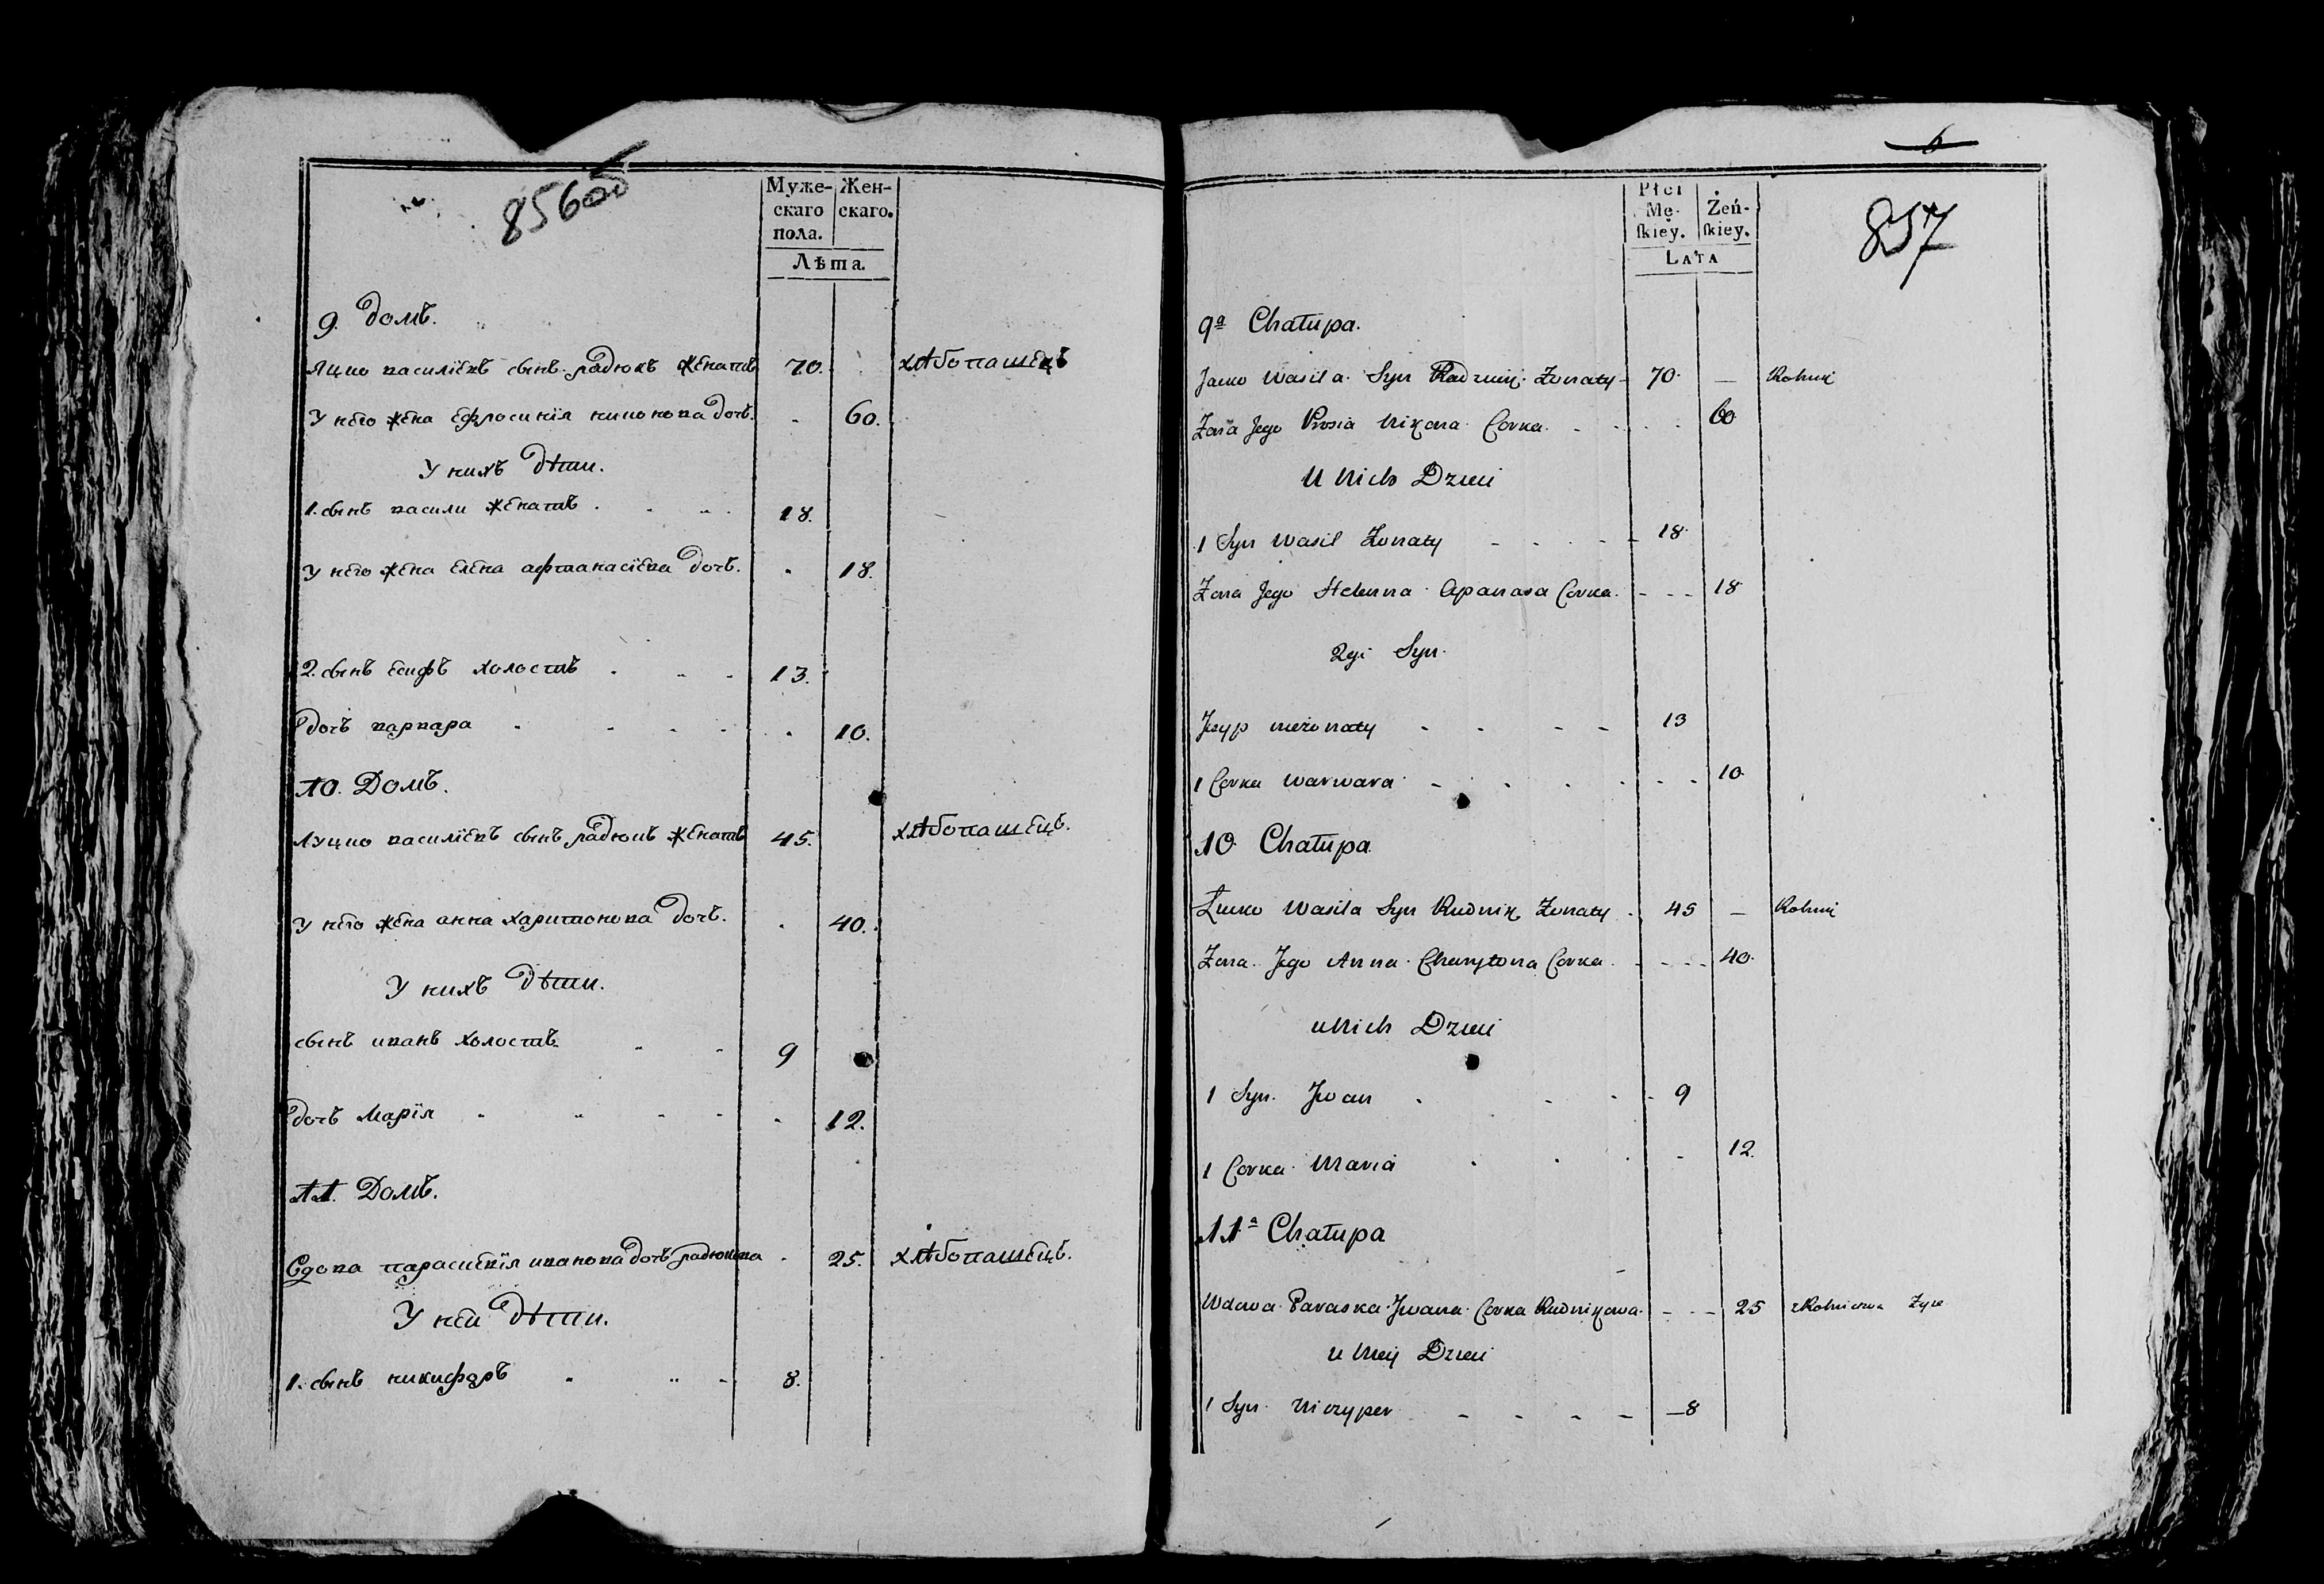 856об
Муже-
скаго
пола.
Жен-
скаго.
Лѣта.
9. домъ.
Яцко василіевъ сынъ радюкъ женатъ 70. хлѣбопашецъ
У него жена ефросинія никонова дочь. 60.
У нихъ дѣти.
1. сынъ васили женатъ 18.
У него жена елена афтанасіева дочь. 18.
2. сынъ есифъ холостъ 13.
дочь варвара 10.
10. Домъ.
Луцко василіевъ сынъ радюкъ женатъ 45. хлѣбопашецъ.
У него жена анна харитонова дочь. 40.
У нихъ дѣти.
сынъ иванъ холостъ 9
дочь Марія 12.
11. Домъ.
Вдова парасквія иванова дочь радюкова 25. хлѣбопашецъ.
У ней дѣти.
1. сынъ никифоръ 8.
6
857
Płci
Mę-
ſkiey.
Żeń-
ſkiey.
LATA
9ª Chałupa.
Jacko Wasila Syn Żonaty 70 Rolnik
Żona Jego Prosia Nikona Corka 60
U Nich Dzieci
1 Syn Wasil Żonaty 18
Żona Jego Helenna Apanasa Corka 18
2gi Syn
Jozyp nieżonaty 13
1 Corka Warwara 10
10 Chałupa
Łucko Wasila Syn Rudnik Żonaty 45 Rolnik
Żona Jego Anna Charytona Corka 40
u Nich Dzieci
1 Syn Jwan 9
1 Corka Maria 12
11ª Chałupa
Wdowa Paraska Jwana Corka Rudnikowa 25 z Rolnictwa Żyie
u Niey Dzieci
1 Syn Niczyper 8